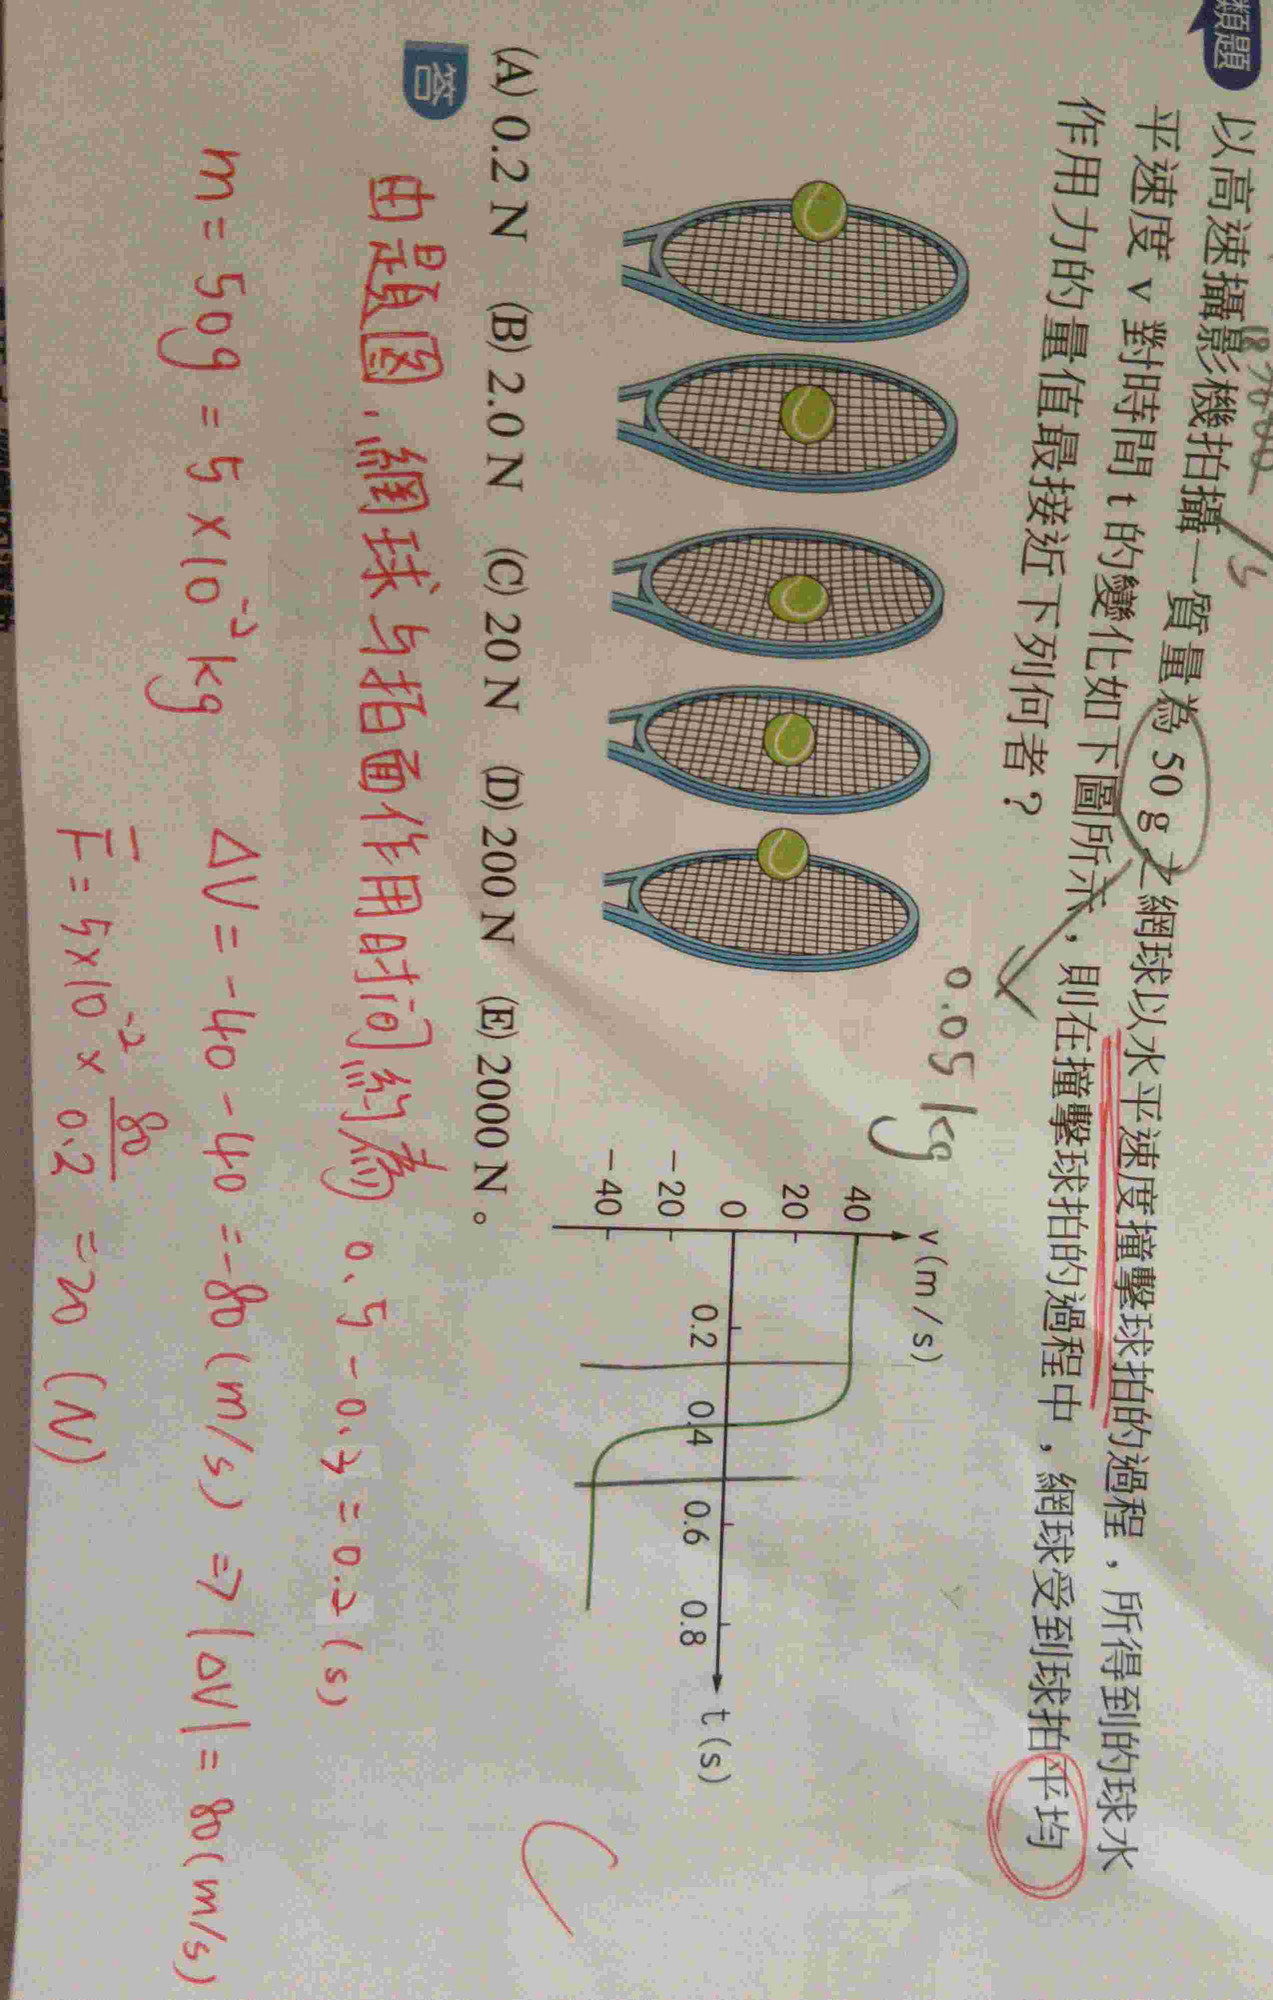 類題
以高速攝影機拍攝一質量為 50 g 之網球以水平速度撞擊球拍的過程，所得到的球水
平速度 v 對時間 t 的變化如下圖所示，則在撞擊球拍的過程中，網球受到球拍平均
作用力的量值最接近下列何者？
0.05 kg
v(m/s)
40
20
0
-20
-40
0.2
0.4
0.6
0.8
t(s)
(A) 0.2 N (B) 2.0 N (C) 20 N (D) 200 N (E) 2000 N。
C
答
由題図,網球与拍面作用时间約為 0.5-0.3=0.2(s)
m=50g=5×10⁻²kg ΔV=-40-40=-80(m/s) ⇒|ΔV|=80(m/s)
F̄=5×10⁻²×80/0.2=20 (N)